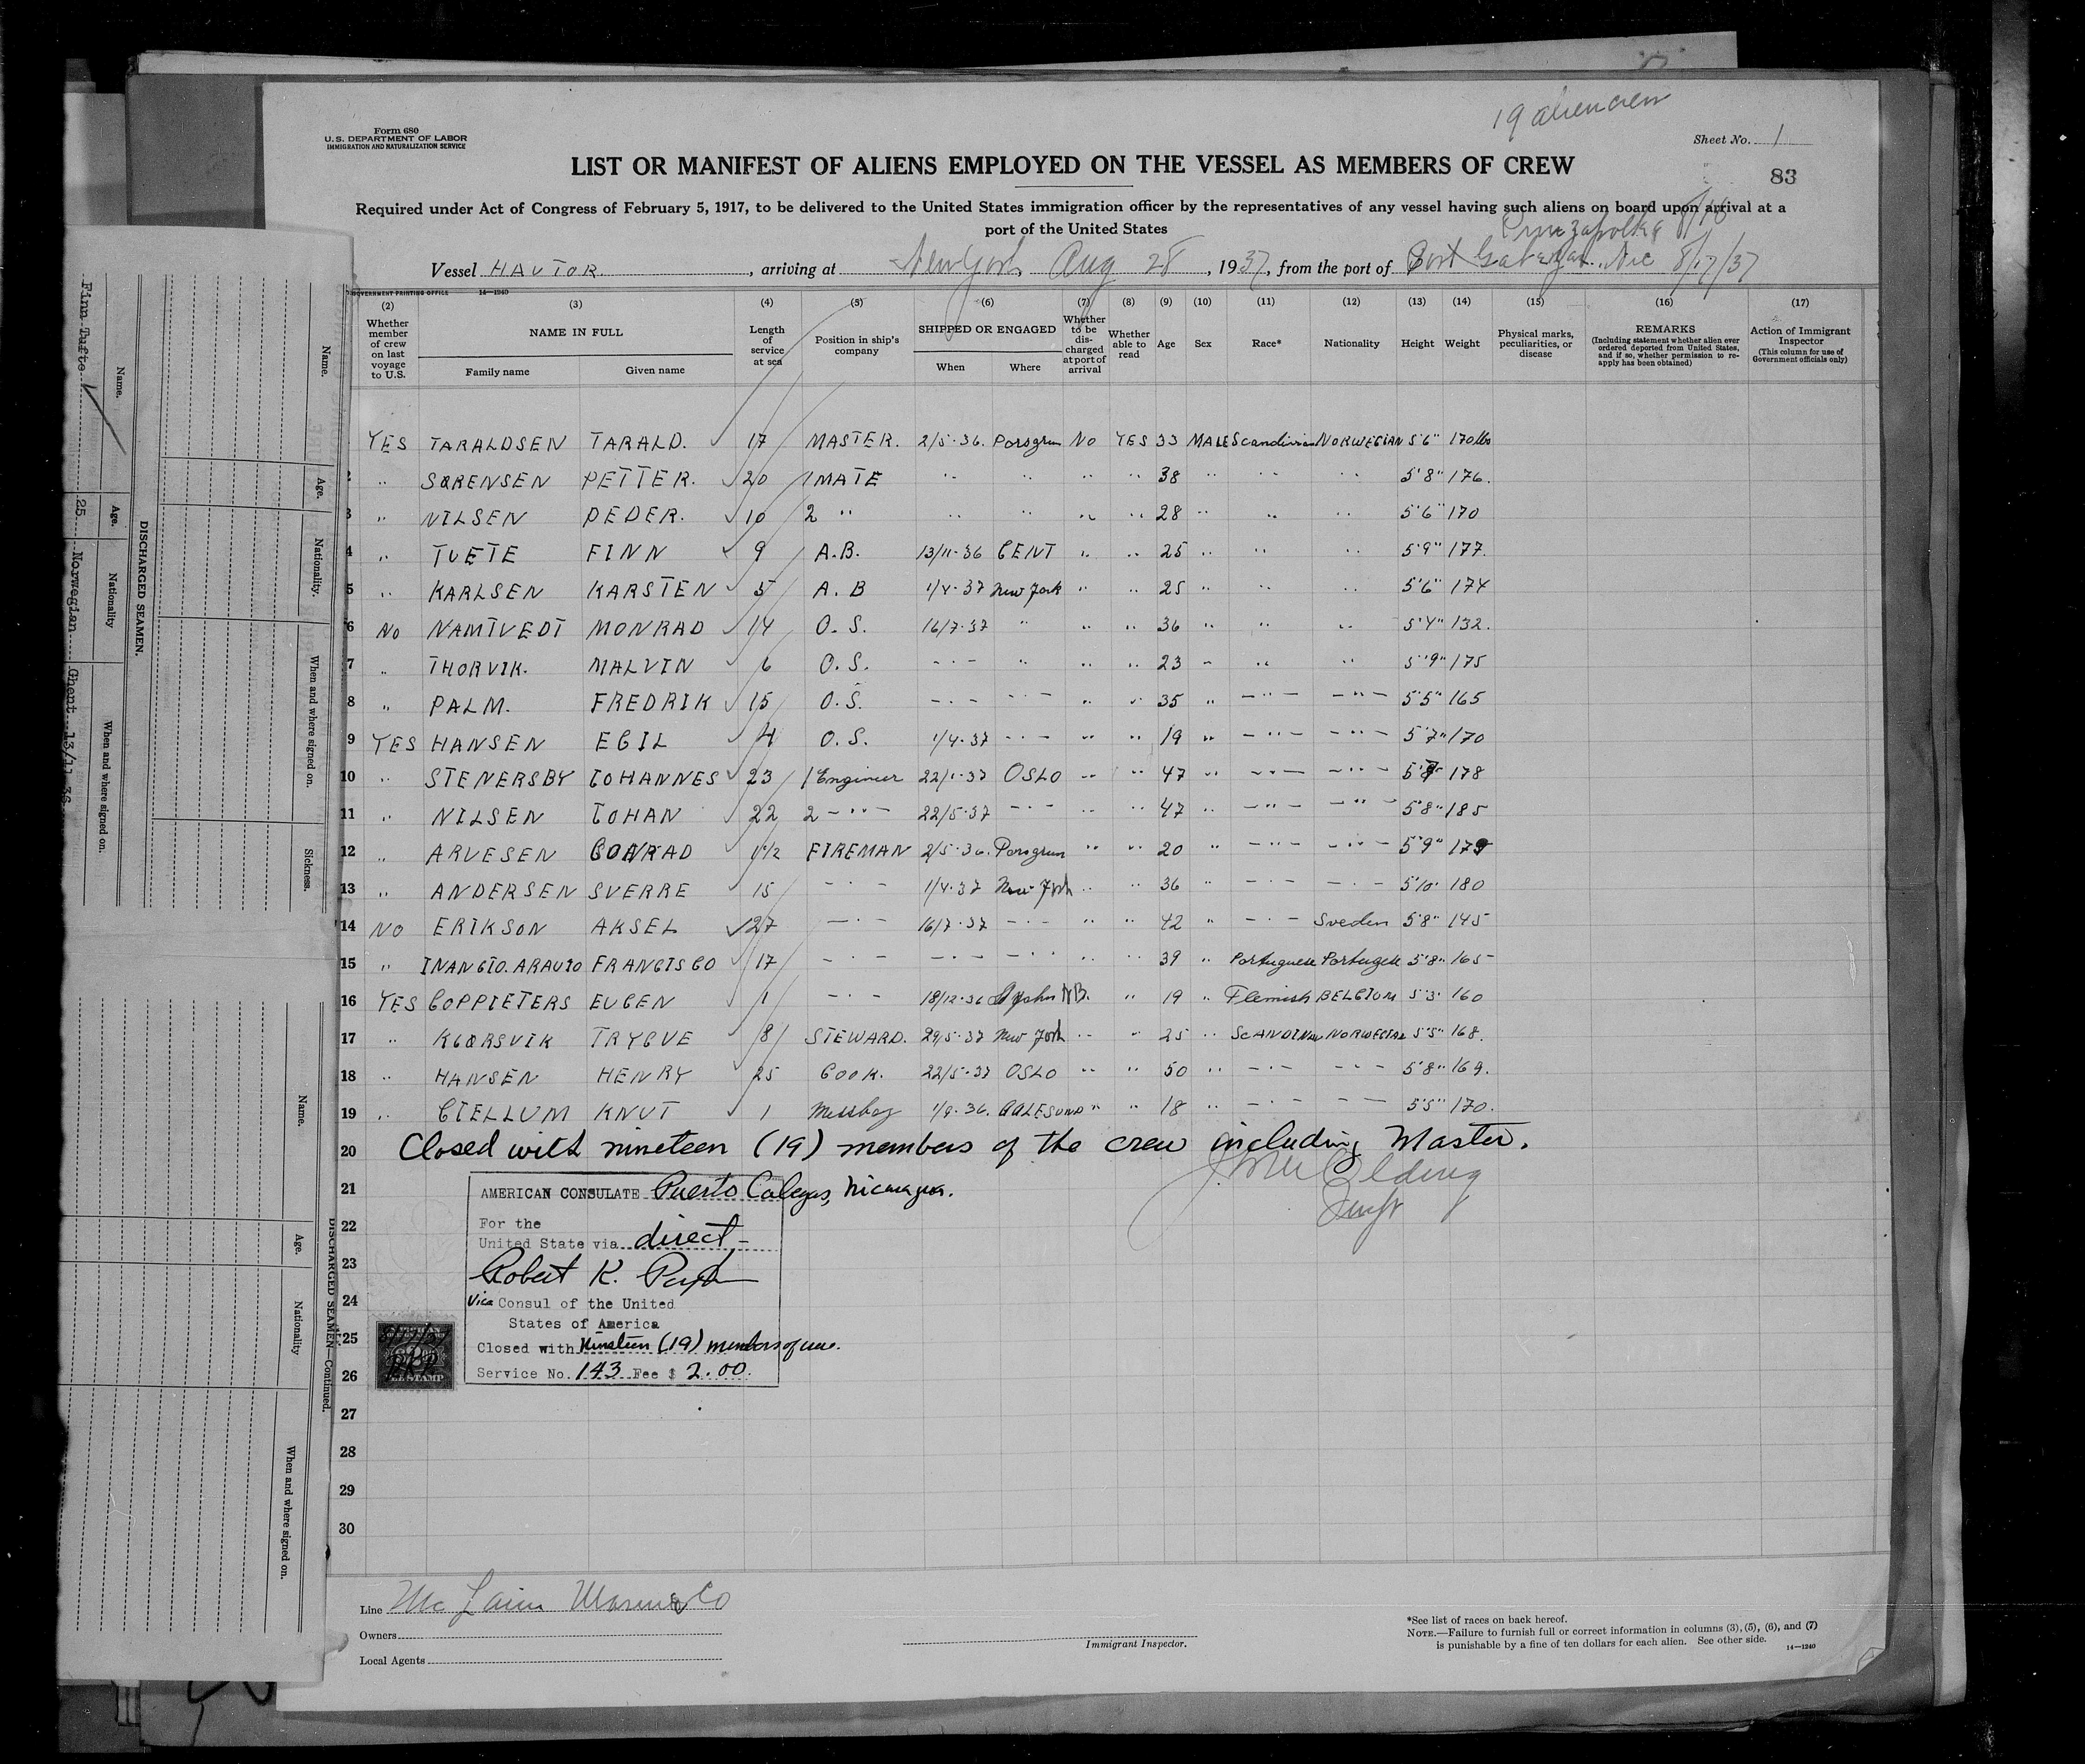 19 alien crew
Form 680
U.S. DEPARTMENT OF LABOR
IMMIGRATION AND NATURALIZATION SERVICE
Sheet No. 1
LIST OR MANIFEST OF ALIENS EMPLOYED ON THE VESSEL AS MEMBERS OF CREW
83
Required under Act of Congress of February 5, 1917, to be delivered to the United States immigration officer by the representatives of any vessel having such aliens on board upon arrival at a
port of the United States
Vessel HAVTOR, arriving at New York Aug 28, 1937, from the port of Nic 8/17/37
GOVERNMENT PRINTING OFFICE 14—1240
(2) (3) (4) (5) (6) (7) (8) (9) (10) (11) (12) (13) (14) (15) (16) (17)
Whether member of crew on last voyage to U.S. NAME IN FULL Family name Given name Length of service at sea Position in ship's company SHIPPED OR ENGAGED When Where Whether to be discharged at port of arrival Whether able to read Age Sex Race* Nationality Height Weight Physical marks, peculiarities, or disease REMARKS (Including statement whether alien ever ordered deported from United States, and if so, whether permission to reapply has been obtained) Action of Immigrant Inspector (This column for use of Government officials only)
YES TARALDSEN TARALD. 17 MASTER. 2/5-36. Porsgrun NO YES 33 MALE Scandivian NORWEGIAN 5'6" 170 lbs
2 " SØRENSEN PETTER. 20 1 MATE " " " " 38 " " " 5'8" 176.
3 " NILSEN PEDER. 10 2 " " " " " 28 " " " 5'6" 170
4 " TVETE FINN 9 A.B. 13/11-36 GENT " " 25 " " " 5'9" 177.
5 " KARLSEN KARSTEN 5 A.B 1/4-37 New York " " 25 " " " 5'6" 174
6 NO NAMTVEDT MONRAD 14 O.S. 16/7-37 " " " 36 " " " 5'4" 132.
7 " THORVIK. MALVIN 6 O.S. -"- " " " 23 " " " 5'9" 175
8 " PALM. FREDRIK 15 O.S. -"- -"- " " 35 " -"- -"- 5'5" 165
9 YES HANSEN EGIL 4 O.S. 1/4-37 -"- " " 19 " -"- -"- 5'7" 170
10 " STENERSBY JOHANNES 23 1 Engineer 22/1-37 OSLO " " 47 " -"- -"- 178
11 " NILSEN JOHAN 22 2 -"- 22/5-37 -"- " " 47 " -"- -"- 5'8" 185
12 " ARVESEN CONRAD 1 1/2 FIREMAN 2/5-36. Porsgrun " " 20 " -"- -"- 5'9" 179
13 " ANDERSEN SVERRE 15 -"- 1/4-37 New York " " 36 " -"- -"- 5'10" 180
14 NO ERIKSON AKSEL 27 -"- 16/7-37 -"- " " 42 " -"- Sveden 5'8" 145
15 " INANCIO. ARAUJO FRANCISCO 17 -"- -"- -"- " " 39 " Portuguese Portugese 5'8" 165
16 YES COPPIETERS EUGEN 1 -"- 18/12-36 St John NB. " 19 " Flemish BELGIUM 5'3" 160
17 " KGØRSVIK TRYGVE 8 STEWARD. 29/5-37 New York " " 25 " SCANDINAV NORWEGIAN 5'5" 168.
18 " HANSEN HENRY 25 COOK. 22/5-37 OSLO " " 50 " -"- -"- 5'8" 169.
19 " GJELLUM KNUT 1 Messboy 1/9-36. AALESUND " " 18 " -"- -"- 5'5" 170.
20 Closed with nineteen (19) members of the crew including Master.
21 AMERICAN CONSULATE Puerto Cabezas, Nicaragua.
22 For the
United State via direct
23 Robert K.
24 Vice Consul of the United
States of America
25 Closed with Nineteen (19) members of crew.
26 Service No. 143 Fee $ 2.00.
27
28
29
30
Line Mc Marine Co
Owners
Local Agents
Immigrant Inspector.
*See list of races on back hereof.
NOTE.—Failure to furnish full or correct information in columns (3), (5), (6), and (7)
is punishable by a fine of ten dollars for each alien. See other side. 14—1240
DISCHARGED SEAMEN.
Name. Age. Nationality When and where signed on.
Finn Tufte 25 Norwegian Ghent 13/11 36
Name. Age. Nationality. When and where signed on. Sickness.
DISCHARGED SEAMEN—Continued.
Name. Age. Nationality When and where signed on.